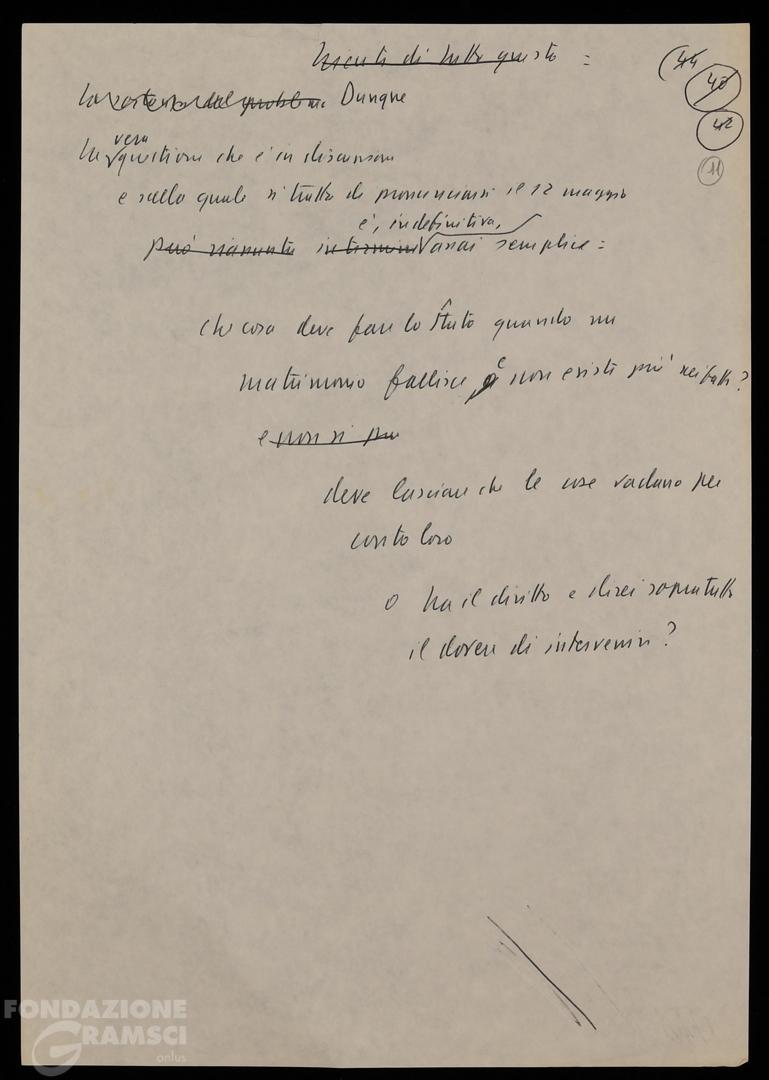 Niente di tutto questo :
44
48
42
11
La sostanza del problema Dunque
La vera questione che è in discussione
e sulla quale si tratta di pronunciarsi il 12 maggio
è, in definitiva,
può riassunta in termini assai semplice :
che cosa deve fare lo Stato quando un
matrimonio fallisce, e non esiste più nei fatti?
e non si può
deve lasciare che le cose vadano per
conto loro
o ha il diritto e direi sopratutto
il dovere di intervenire?
FONDAZIONE
GRAMSCI
onlus